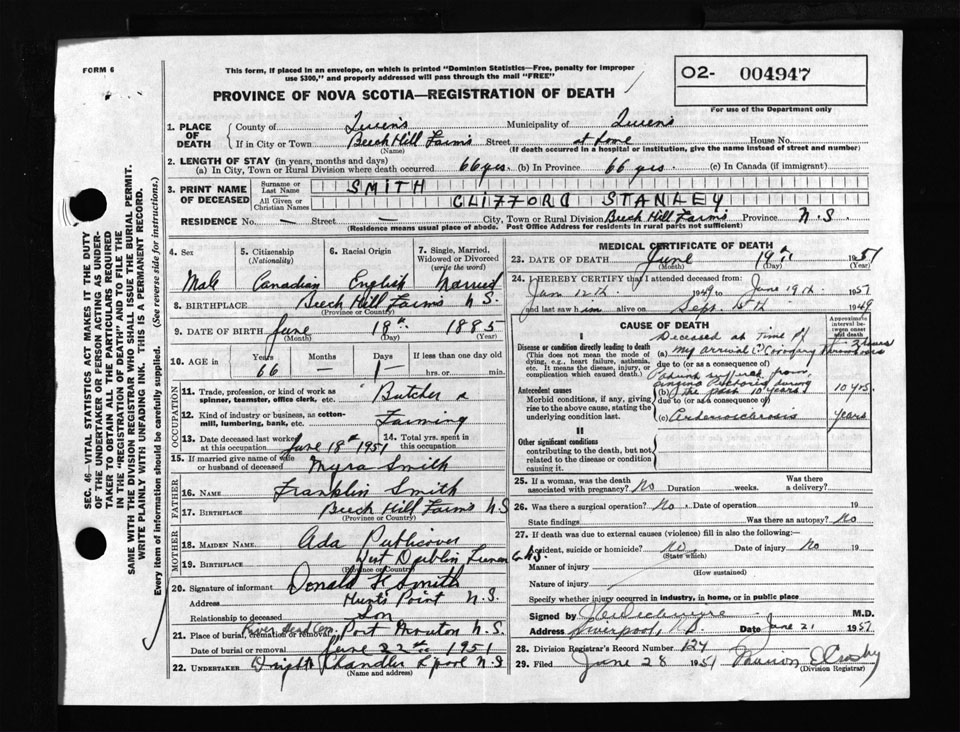 FORM 6
This form, if placed in an envelope, on which is printed "Dominion Statistics—Free, penalty for improper
use $300," and properly addressed will pass through the mail "FREE"
O2- 004947
For use of the Department only
PROVINCE OF NOVA SCOTIA—REGISTRATION OF DEATH
SEC. 46 VITAL STATISTICS ACT MAKES IT THE DUTY
OF THE UNDERTAKER OR PERSON ACTING AS UNDER-
TAKER TO OBTAIN ALL THE PARTICULARS REQUIRED
IN THE "REGISTRATION OF DEATH" AND TO FILE THE
SAME WITH THE DIVISION REGISTRAR WHO SHALL ISSUE THE BURIAL PERMIT.
WRITE PLAINLY WITH UNFADING INK. THIS IS A PERMANENT RECORD.
Every item of information should be carefully supplied. (See reverse side for instructions.)
1. PLACE OF DEATH
County of Queens Municipality of Queens
If in City or Town Beech Hill Farms Street at home House No.
(Name) (If death occurred in a hospital or institution, give the name instead of street and number)
2. LENGTH OF STAY (in years, months and days)
(a) In City, Town or Rural Division where death occurred 66 yrs. (b) In Province 66 yrs. (c) In Canada (if immigrant)
3. PRINT NAME OF DECEASED
Surname or Last Name SMITH
All Given or Christian Names CLIFFORD STANLEY
RESIDENCE No. — Street — City, Town or Rural Division Beech Hill Farms Province N.S.
(Residence means usual place of abode. Post Office Address for residents in rural parts not sufficient)
4. Sex Male
5. Citizenship (Nationality) Canadian
6. Racial Origin English
7. Single, Married, Widowed or Divorced (write the word) Married
8. BIRTHPLACE Beech Hill Farms N.S.
(Province or Country)
9. DATE OF BIRTH June 18th 1885
(Month) (Day) (Year)
10. AGE in Years 66 Months — Days 1 If less than one day hrs. or min.
OCCUPATION
11. Trade, profession, or kind of work as
spinner, teamster, office clerk, etc. Butcher &
12. Kind of industry or business, as cotton-
mill, lumbering, bank, etc. Farming
13. Date deceased last worked
at this occupation June 18th 1951
14. Total yrs. spent in
this occupation
15. If married give name of wife
or husband of deceased Myra Smith
FATHER
16. NAME Franklin Smith
17. BIRTHPLACE Beech Hill Farms N.S
(Province or Country)
MOTHER
18. MAIDEN NAME Ada Publicover
19. BIRTHPLACE West Dublin Lunen Co. N.S.
(Province or Country)
20. Signature of informant Donald H Smith
Address Hunts Point N.S.
Relationship to deceased Son
21. Place of burial, cremation or removal River Head Cem. Port Mouton N.S.
Date of burial or removal June 22nd 1951
22. UNDERTAKER Dwight Chandler L'pool N.S
(Name and address)
MEDICAL CERTIFICATE OF DEATH
23. DATE OF DEATH June 19th 1951
(Month) (Day) (Year)
24. I HEREBY CERTIFY that I attended deceased from:
Jan 12th 1949 to June 19th 1951
and last saw him alive on Sept. 6th 1949
CAUSE OF DEATH
Approximate interval between onset and death
I
Disease or condition directly leading to death
(This does not mean the mode of
dying, e.g., heart failure, asthenia,
etc. It means the disease, injury, or
complication which caused death.)
Deceased at time of
(a) my arrival (?) Coronary Thrombosis 2 hours
due to (or as a consequence of)
Antecedent causes
Morbid conditions, if any, giving
rise to the above cause, stating the
underlying condition last.
suffered from
Angina Pectoris during
(b) the past 10 years 10 yrs.
due to (or as a consequence of)
(c) Arteriosclerosis years
II
Other significant conditions
contributing to the death, but not
related to the disease or condition
causing it.
25. If a woman, was the death
associated with pregnancy? No Duration weeks. Was there
a delivery?
26. Was there a surgical operation? No. Date of operation 19
State findings Was there an autopsy? No
27. If death was due to external causes (violence) fill in also the following:—
Accident, suicide or homicide? No Date of injury No 19
(State which)
Manner of injury
(How sustained)
Nature of injury
Specify whether injury occurred in industry, in home, or in public place
Signed by M.D.
Address Liverpool, N.S. Date June 21 1951
28. Division Registrar's Record Number 124
29. Filed June 28 1951 Marion E Crosby
(Division Registrar)